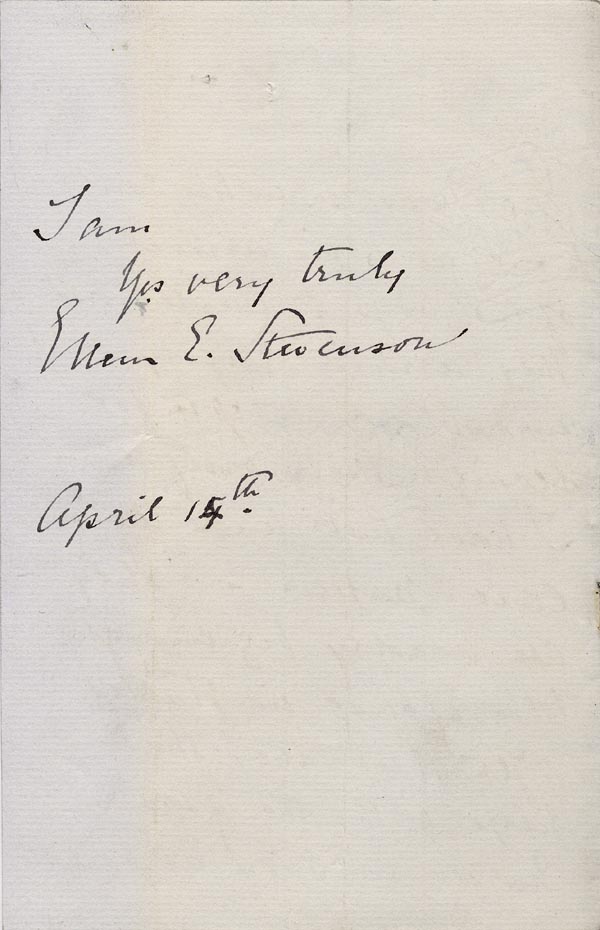 I am
Yrs very truly
Ellen E. Stevenson
April 14th.